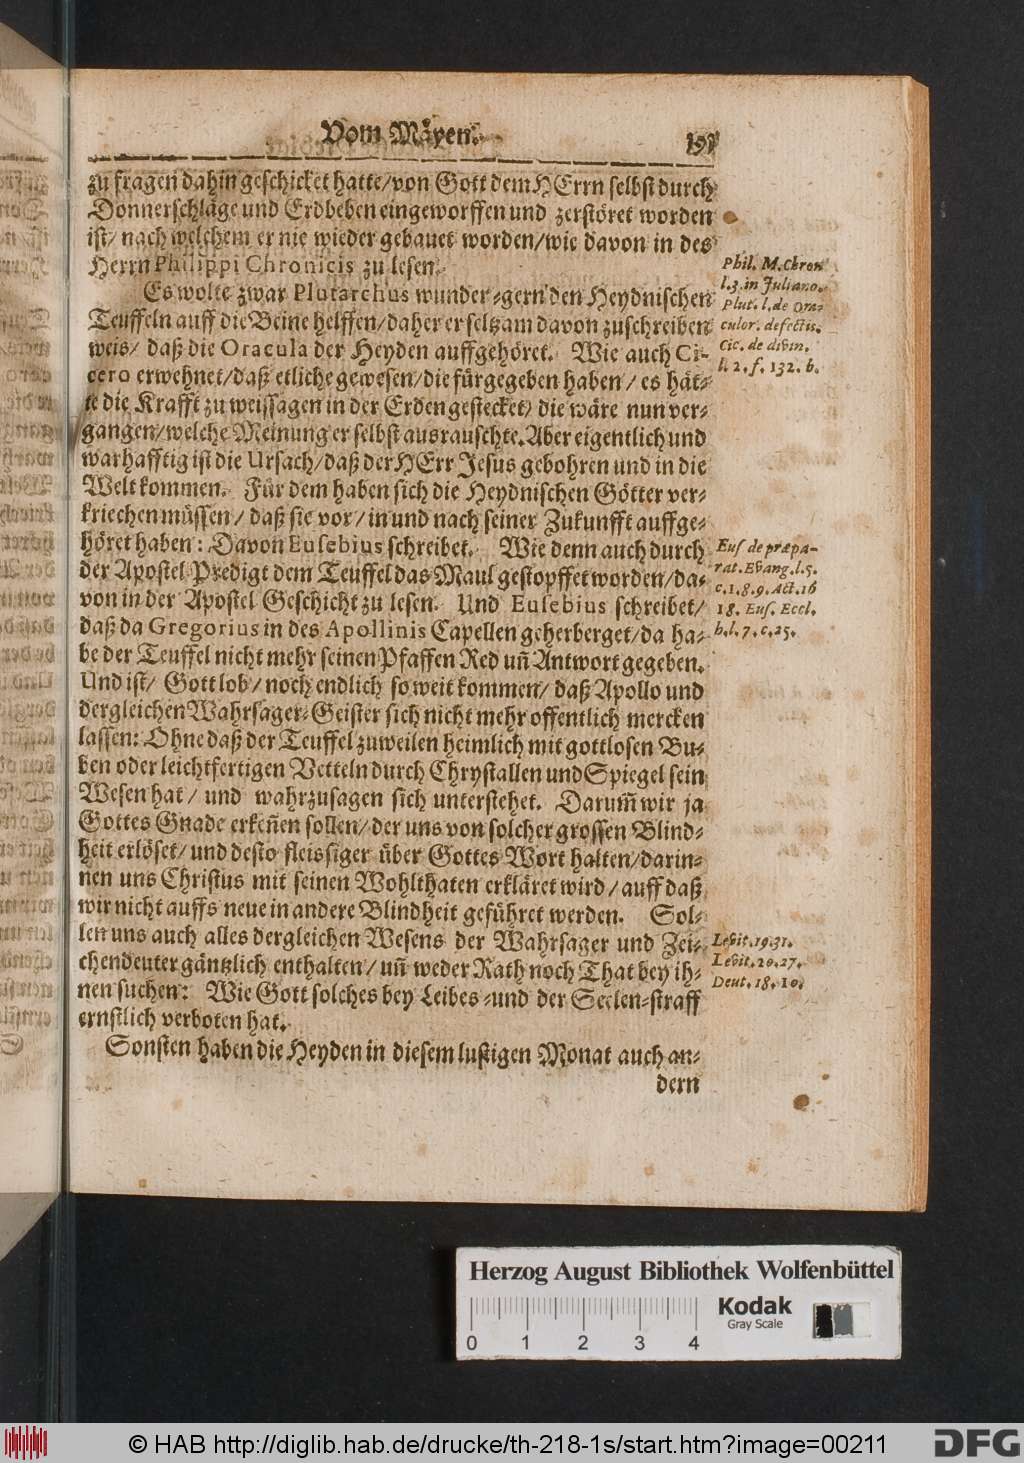 Vom Mäyen. 191
zu fragen dahin geschicket hatte/von Gott dem HErrn selbst durch
Donnerschläge und Erdbeben eingeworffen und zerstöret worden
ist/ nach welchem er nie wieder gebauet worden/wie davon in des
Herrn Philippi Chronicis zu lesen.
Es wolte zwar Plutarchus wunder-gern den Heydnischen
Teuffeln auff die Beine helffen/daher er seltzam davon zuschreiben
weis/ daß die Oracula der Heyden auffgehöret. Wie auch Ci-
cero erwehnet/daß etliche gewesen/die fürgegeben haben/ es hät-
te die Krafft zu weissagen in der Erden gestecket/ die wäre nun ver-
gangen/welche Meinung er selbst ausrauschte. Aber eigentlich und
warhafftig ist die Ursach/daß der HErr Jesus gebohren und in die
Welt kommen. Für dem haben sich die Heydnischen Götter ver-
kriechen müssen/ daß sie vor/ in und nach seiner Zukunfft auffge-
höret haben: Davon Eusebius schreibet. Wie denn auch durch
der Apostel Predigt dem Teuffel das Maul gestopffet worden/da-
von in der Apostel Geschicht zu lesen. Und Eusebius schreibet/
daß da Gregorius in des Apollinis Capellen geherberget/da ha-
be der Teuffel nicht mehr seinen Pfaffen Red uñ Antwort gegeben.
Und ist/ Gott lob/ noch endlich so weit kommen/ daß Apollo und
dergleichen Wahrsager-Geister sich nicht mehr offentlich mercken
lassen: Ohne daß der Teuffel zuweilen heimlich mit gottlosen Bu-
ben oder leichtfertigen Vetteln durch Chrystallen und Spiegel sein
Wesen hat/ und wahrzusagen sich unterstehet. Darum̃ wir ja
Gottes Gnade erkeñen sollen/der uns von solcher grossen Blind-
heit erlöset/ und desto fleissiger über Gottes Wort halten/darin-
nen uns Christus mit seinen Wohlthaten erkläret wird/auff daß
wir nicht auffs neue in andere Blindheit geführet werden. Sol-
len uns auch alles dergleichen Wesens der Wahrsager und Zei-
chendeuter gäntzlich enthalten/ uñ weder Rath noch That bey ih-
nen suchen: Wie Gott solches bey Leibes-und der Seelen-straff
ernstlich verboten hat.
Sonsten haben die Heyden in diesem lustigen Monat auch an-
dern
Phil. M. Chron
l. 3. in Juliano.
Plut. l. de Ora-
culor. defectis.
Cic. de divin.
l. 2. f. 132. b.
Eus de præpa-
rat. Evang. l. 5.
c. 1. 8. 9. Act. 16
18. Eus. Eccl.
h. l. 7. c. 25.
Levit. 19. 31.
Levit. 20. 27.
Deut. 18. 10.
Herzog August Bibliothek Wolfenbüttel
Kodak
Gray Scale
0 1 2 3 4
© HAB http://diglib.hab.de/drucke/th-218-1s/start.htm?image=00211
DFG